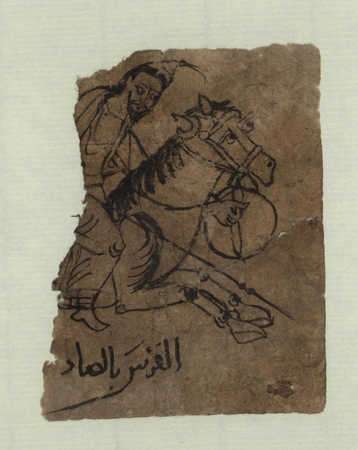 الفرس بالصاد